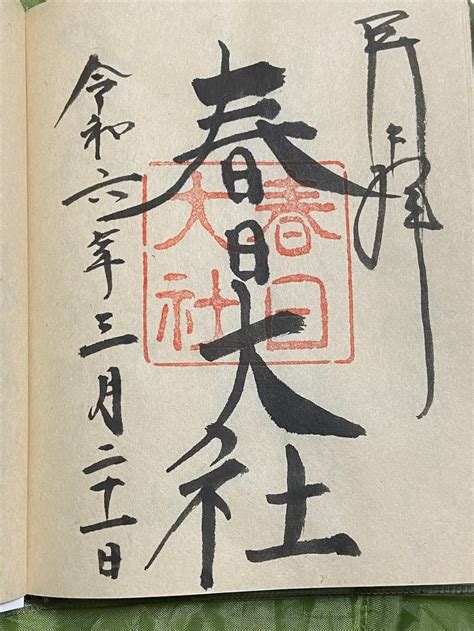 春日大社
春日
大社
令和六年三月二十一日